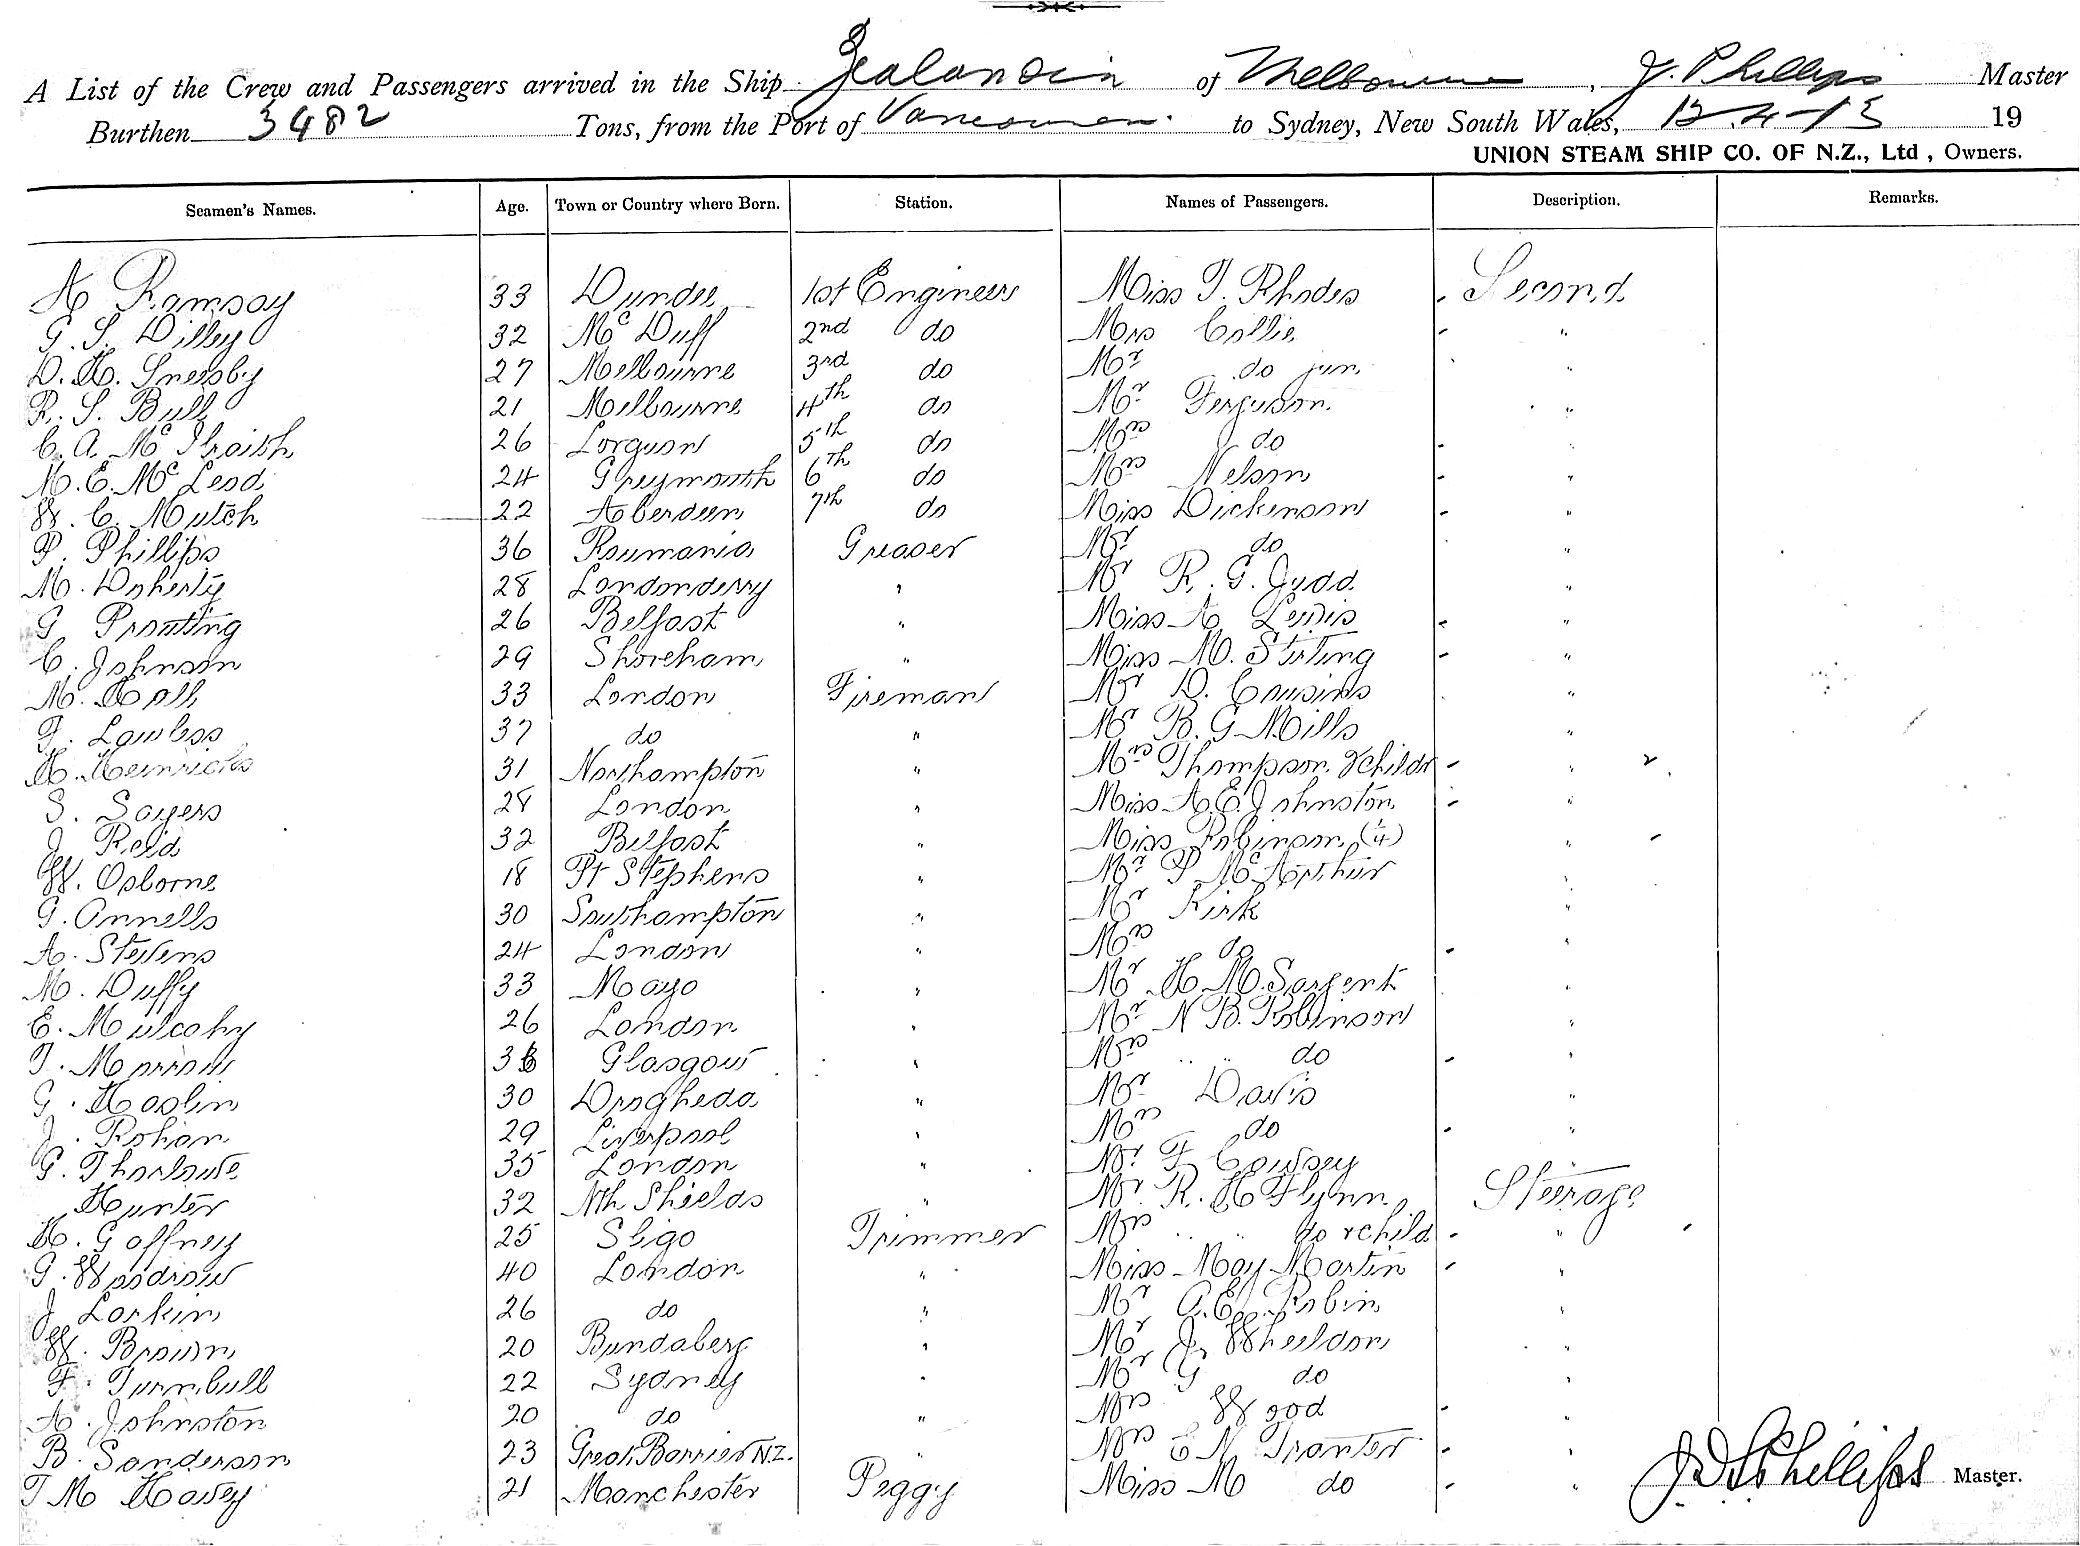 A List of the Crew and Passengers arrived in the Ship Zealandia of Melbourne, J. Phillips Master
Burthen 3482 Tons, from the Port of Vancouver. to Sydney, New South Wales, 12-4-13 19
UNION STEAM SHIP CO. OF N.Z., Ltd , Owners.
Seamen's Names. Age. Town or Country where Born. Station. Names of Passengers. Description. Remarks.
A Ramsay 33 Dundee 1st Engineer Miss T. Rhodes Second
G. S. Dilley 32 Mc Duff 2nd do Mrs Collie "
D. H. Snersby 27 Melbourne 3rd do Mr do jun. "
R. S. Bull 21 Melbourne 4th do Mr Ferguson. "
C. A. Mc Ilraith 26 5th do Mrs J do
M. E. Mc Leod 24 Greymouth 6th do Mrs Nelson "
W. C. Mutch 22 Aberdeen 7th do Miss Dickenson "
P. Phillips 36 Roumania Greaser Mr do "
M. Doherty 28 Londonderry " Mr R. G. Judd. "
G Prouting 26 Belfast " Miss A Lewis "
C. Johnson 29 Shoreham " Miss M. Stirling "
M. Hall 33 London Fireman Mr D. Cousins "
F. Lawless 37 do " Mr B. G Mills "
H. Heinrichs 31 Northampton " Mrs Thompson & childr "
S. Sayers 28 London " Miss A. E. Johnston "
J Reid 32 Belfast " Miss Robinson (4) "
W. Osborne 18 Pt Stephens " Mr P McArthur "
G. Annells 30 Southampton " Mr Kirk "
A. Stevens 24 London " Mrs do "
M. Duffy 33 Mayo " Mr H. M. Sargent "
E. Mulcahy 26 London " Mr N B. Robinson "
T. Morrow Glasgow " Mrs " " do "
G. Haslin 30 Drogheda " Mr Davis "
J. Rohan 29 Liverpool " Mrs do "
G. Thorlowe 35 London " Mr F Coursey "
Hunter 32 Nth Shields " Mr R. H Flynn. Steerage
H. Gaffney 25 Sligo Trimmer Mrs " " do & child "
G. Woodrow 40 London " Miss May Martin "
J Larkin 26 do " Mr A. E. Robin "
W. Brown 20 Bundaberg " Mr J. Wheeldon "
F. Turnbull 22 Sydney " Mr G do "
A. Johnston 20 do " Mrs Wood "
B. Sanderson 23 Great Barrier N.Z. " Mrs E N Tranter "
T M Havey 21 Manchester Peggy Miss M do "
J D S Phillips Master.